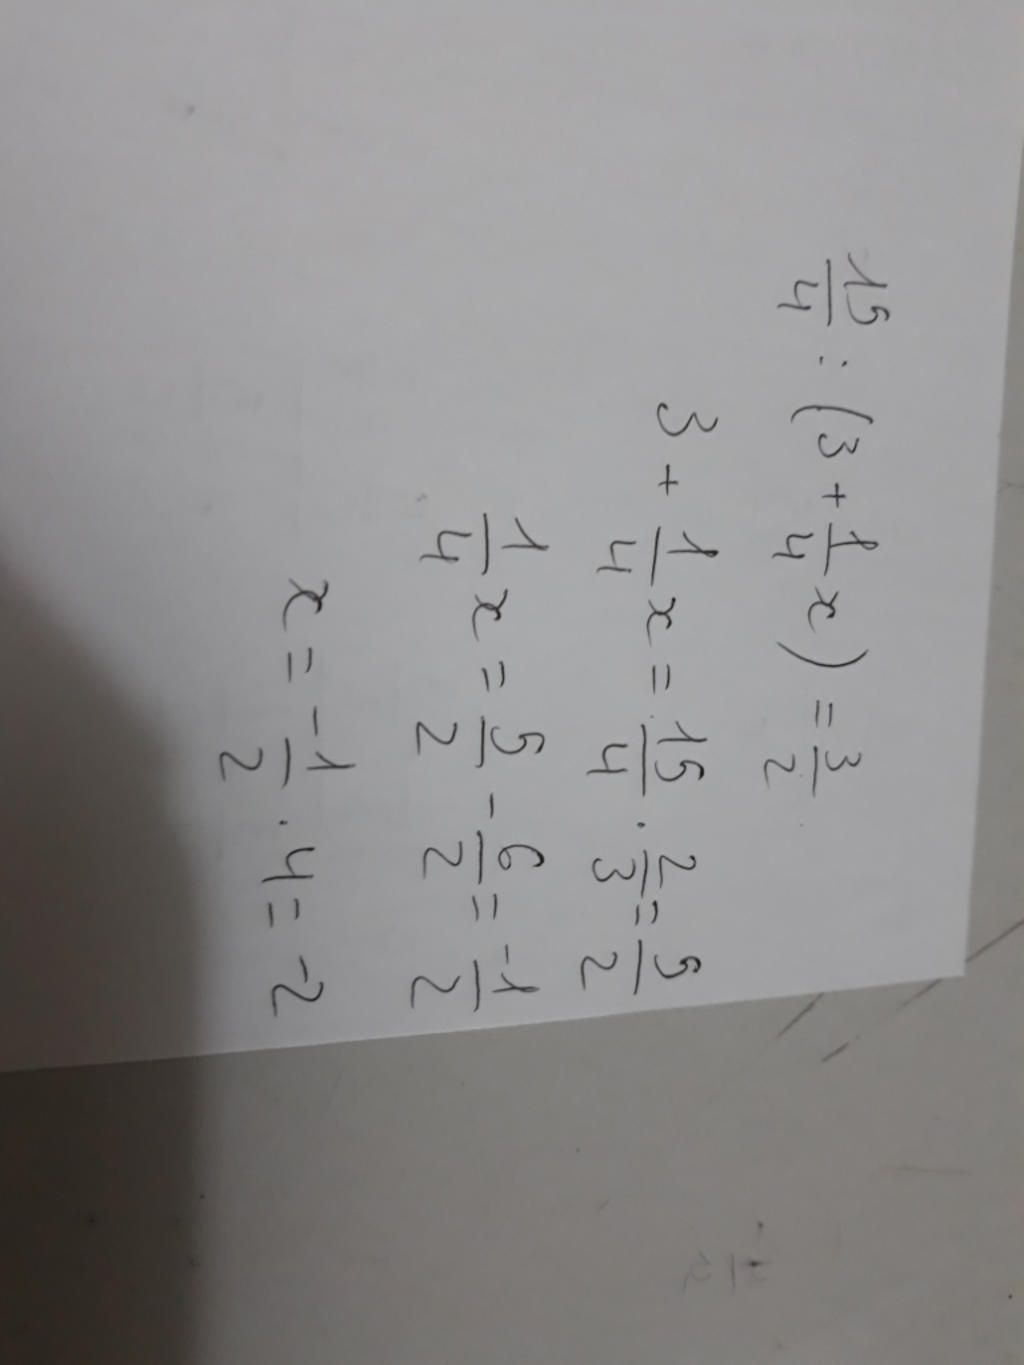 15/4 : (3 + 1/4 x) = 3/2
3 + 1/4 x = 15/4 . 2/3 = 5/2
1/4 x = 5/2 - 6/2 = -1/2
x = -1/2 . 4 = -2